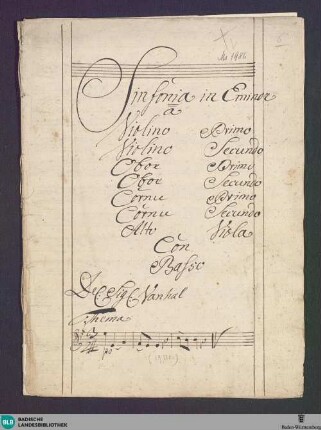 Ms 1986
Sinfonia in Eminor
a
Violino Primo
Violino Secundo
Oboe Primo
Oboe Secundo
Cornu Primo
Cornu Secundo
Alto Viola
Con
Basso
Del Sig Vanhal
Thema
BLB BADISCHE
LANDESBIBLIOTHEK
Baden-Württemberg